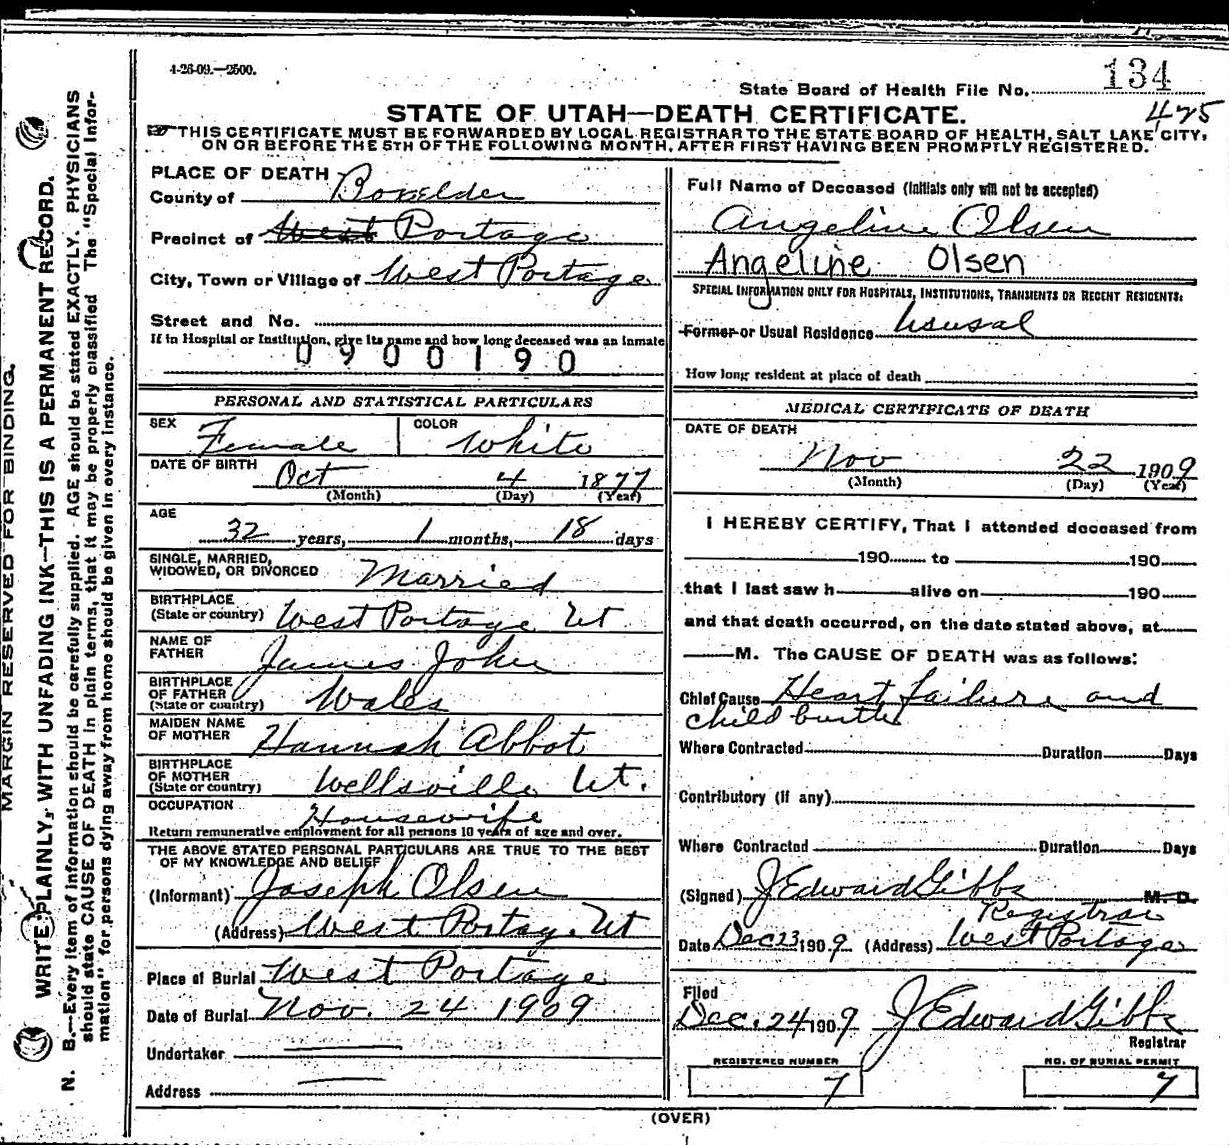 4-26-09.—2500.
State Board of Health File No. 134
425
STATE OF UTAH—DEATH CERTIFICATE.
THIS CERTIFICATE MUST BE FORWARDED BY LOCAL REGISTRAR TO THE STATE BOARD OF HEALTH, SALT LAKE CITY,
ON OR BEFORE THE 5TH OF THE FOLLOWING MONTH, AFTER FIRST HAVING BEEN PROMPTLY REGISTERED.
MARGIN RESERVED FOR BINDING.
WRITE PLAINLY, WITH UNFADING INK—THIS IS A PERMANENT RECORD.
N. B.—Every item of information should be carefully supplied. AGE should be stated EXACTLY. PHYSICIANS
should state CAUSE OF DEATH in plain terms, that it may be properly classified. The "Special Infor-
mation" for persons dying away from home should be given in every instance.
PLACE OF DEATH
County of Boxelder
Precinct of West Portage
City, Town or Village of West Portage
Street and No.
If in Hospital or Institution, give its name and how long deceased was an inmate
0900190
PERSONAL AND STATISTICAL PARTICULARS
SEX Female COLOR White
DATE OF BIRTH Oct 4 1877
(Month) (Day) (Year)
AGE
32 years, 1 months, 18 days
SINGLE, MARRIED,
WIDOWED, OR DIVORCED Married
BIRTHPLACE
(State or country) West Portage Ut
NAME OF
FATHER James John
BIRTHPLACE
OF FATHER
(State or country) Wales
MAIDEN NAME
OF MOTHER Hannah Abbot
BIRTHPLACE
OF MOTHER
(State or country) Wellsville Ut.
OCCUPATION Housewife
Return remunerative employment for all persons 10 years of age and over.
THE ABOVE STATED PERSONAL PARTICULARS ARE TRUE TO THE BEST
OF MY KNOWLEDGE AND BELIEF
(Informant) Joseph Olsen
(Address) West Portage Ut
Place of Burial West Portage
Date of Burial Nov. 24 1909
Undertaker
Address
Full Name of Deceased (Initials only will not be accepted)
Angeline Olsen
Angeline Olsen
SPECIAL INFORMATION ONLY FOR HOSPITALS, INSTITUTIONS, TRANSIENTS OR RECENT RESIDENTS:
Former or Usual Residence Ususal
How long resident at place of death
MEDICAL CERTIFICATE OF DEATH
DATE OF DEATH
Nov 22 1909
(Month) (Day) (Year)
I HEREBY CERTIFY, That I attended deceased from
190 to 190
that I last saw h alive on 190
and that death occurred, on the date stated above, at
M. The CAUSE OF DEATH was as follows:
Chief Cause Heart failure and
child burth
Where Contracted Duration Days
Contributory (if any)
Where Contracted Duration Days
(Signed) J Edward Gibbs M. D.
Registrar
Date Dec 23 1909 (Address) West Portage
Filed
Dec. 24 1909 J Edward Gibbs
Registrar
REGISTERED NUMBER
7
NO. OF BURIAL PERMIT
7
(OVER)